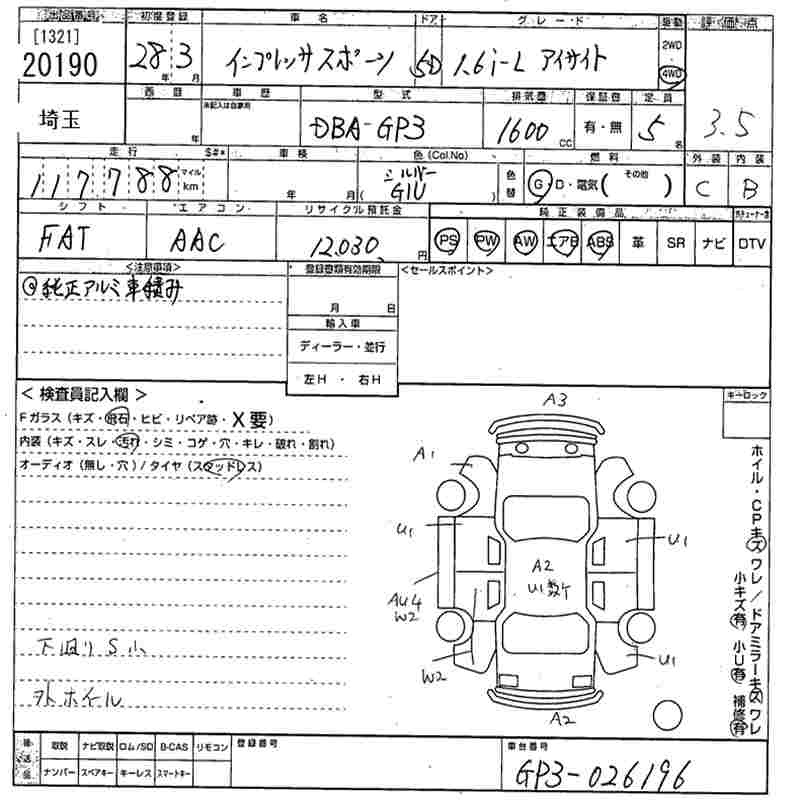 出品番号 初度登録 車名 ドア グレード 駆動 評価点
[1321]
20190 28年 3月 インプレッサスポーツ 5D 1.6i-L アイサイト 2WD 4WD 3.5
埼玉 西暦 年 車歴 未記入は自家用 型式 DBA-GP3 排気量 1600cc 保証書 有・無 定員 5名
走行 S#* 車検 色(Col.No) 燃料 外装 内装
117788 マイル km 年 月 シルバー ( G1U ) 色替 G D・電気 ( その他 ) C B
シフト エアコン リサイクル預託金 純正装備品
FAT AAC 12,030円 PS PW AW エアB ABS 革 SR ナビ DTV
<注意事項> 登録書類有効期限 <セールスポイント>
◎純正アルミ車積み
月 日
輸入車
ディーラー・並行
左H ・ 右H
<検査員記入欄> キーロック
Fガラス(キズ・飛石・ヒビ・リペア跡・X要)
内装(キズ・スレ・汚れ・シミ・コゲ・穴・キレ・破れ・割れ)
オーディオ(無し・穴)/タイヤ(スタッドレス)
A3
A1
U1 U1
A2
U1数ケ
AU4
W2
W2 U1
A2
下廻りS小
外ホイル
ホイル・CPキズワレ/ドアミラーキズワレ
小キズ有 小U有 補修有
後送品 取説 ナビ取説 ロム/SD B-CAS リモコン 登録番号 車台番号
ナンバー スペアキー キーレス スマートキー GP3-026196